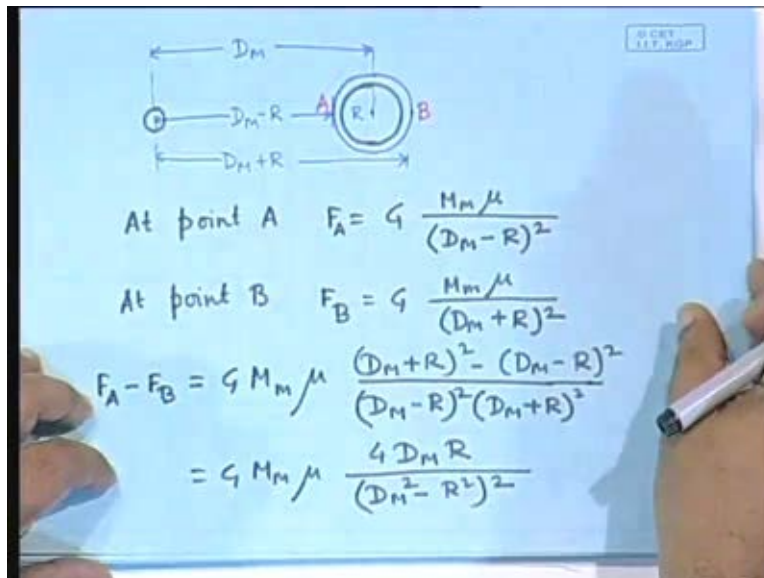 © CET
I.I.T. KGP
D_M
A
R
B
D_M-R
D_M+R
At point A F_A = G \frac{M_m μ}{(D_M - R)^2}
At point B F_B = G \frac{M_m μ}{(D_M + R)^2}
F_A - F_B = G M_m μ \frac{(D_M+R)^2 - (D_M-R)^2}{(D_M-R)^2 (D_M+R)^2}
= G M_m μ \frac{4 D_M R}{(D_M^2 - R^2)^2}